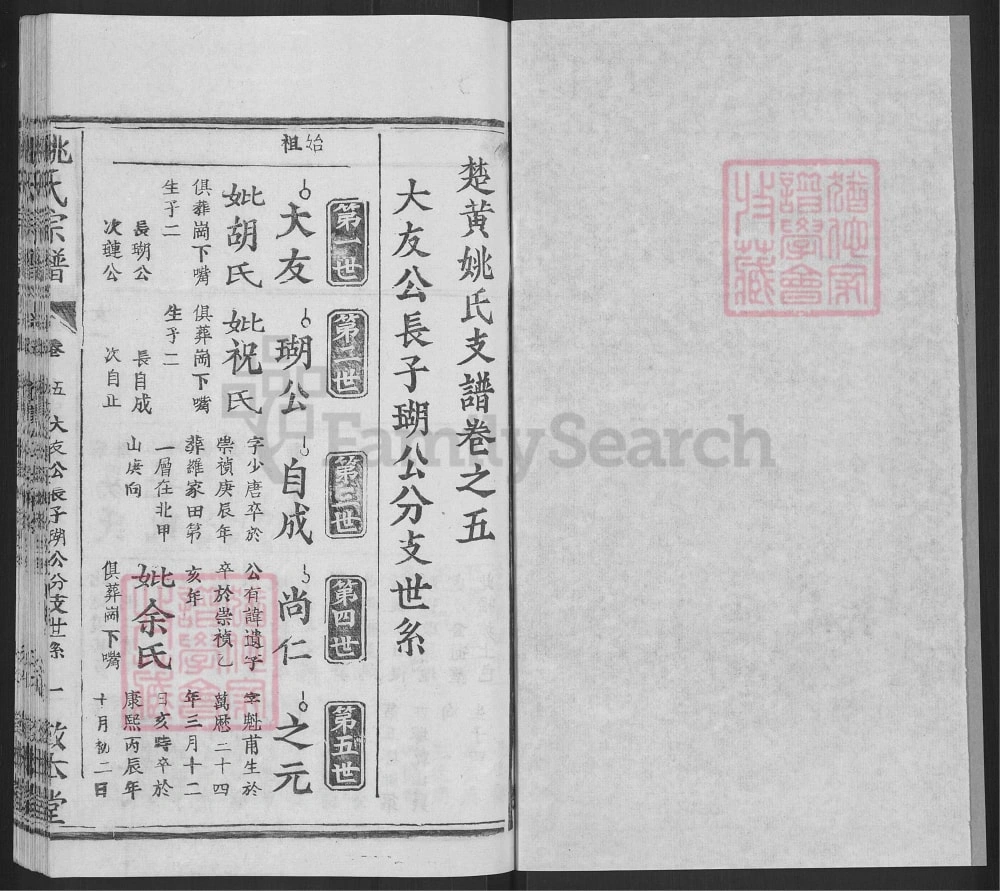 楚黄姚氏支譜卷之五
大友公長子瑚公分支世系
第一世
第二世
第三世
第四世
第五世
始祖
大友
妣胡氏
俱葬崗下嘴
生子二
長瑚公
次璉公
瑚公
妣祝氏
俱葬崗下嘴
生子二
長自成
次自正
自成
字少唐卒於
崇禎庚辰年
葬羅家田第
一層在北甲
山庚向
尚仁
公有諱遺字
卒於崇禎乙
亥年
妣余氏
俱葬崗下嘴
之元
字魁甫生於
萬厯二十四
年三月十二
日亥時卒於
康熙丙辰年
十月初二日
姚氏宗譜
卷五
大友公長子瑚公分支世系
一
敘本堂
譜學會
收藏
FamilySearch